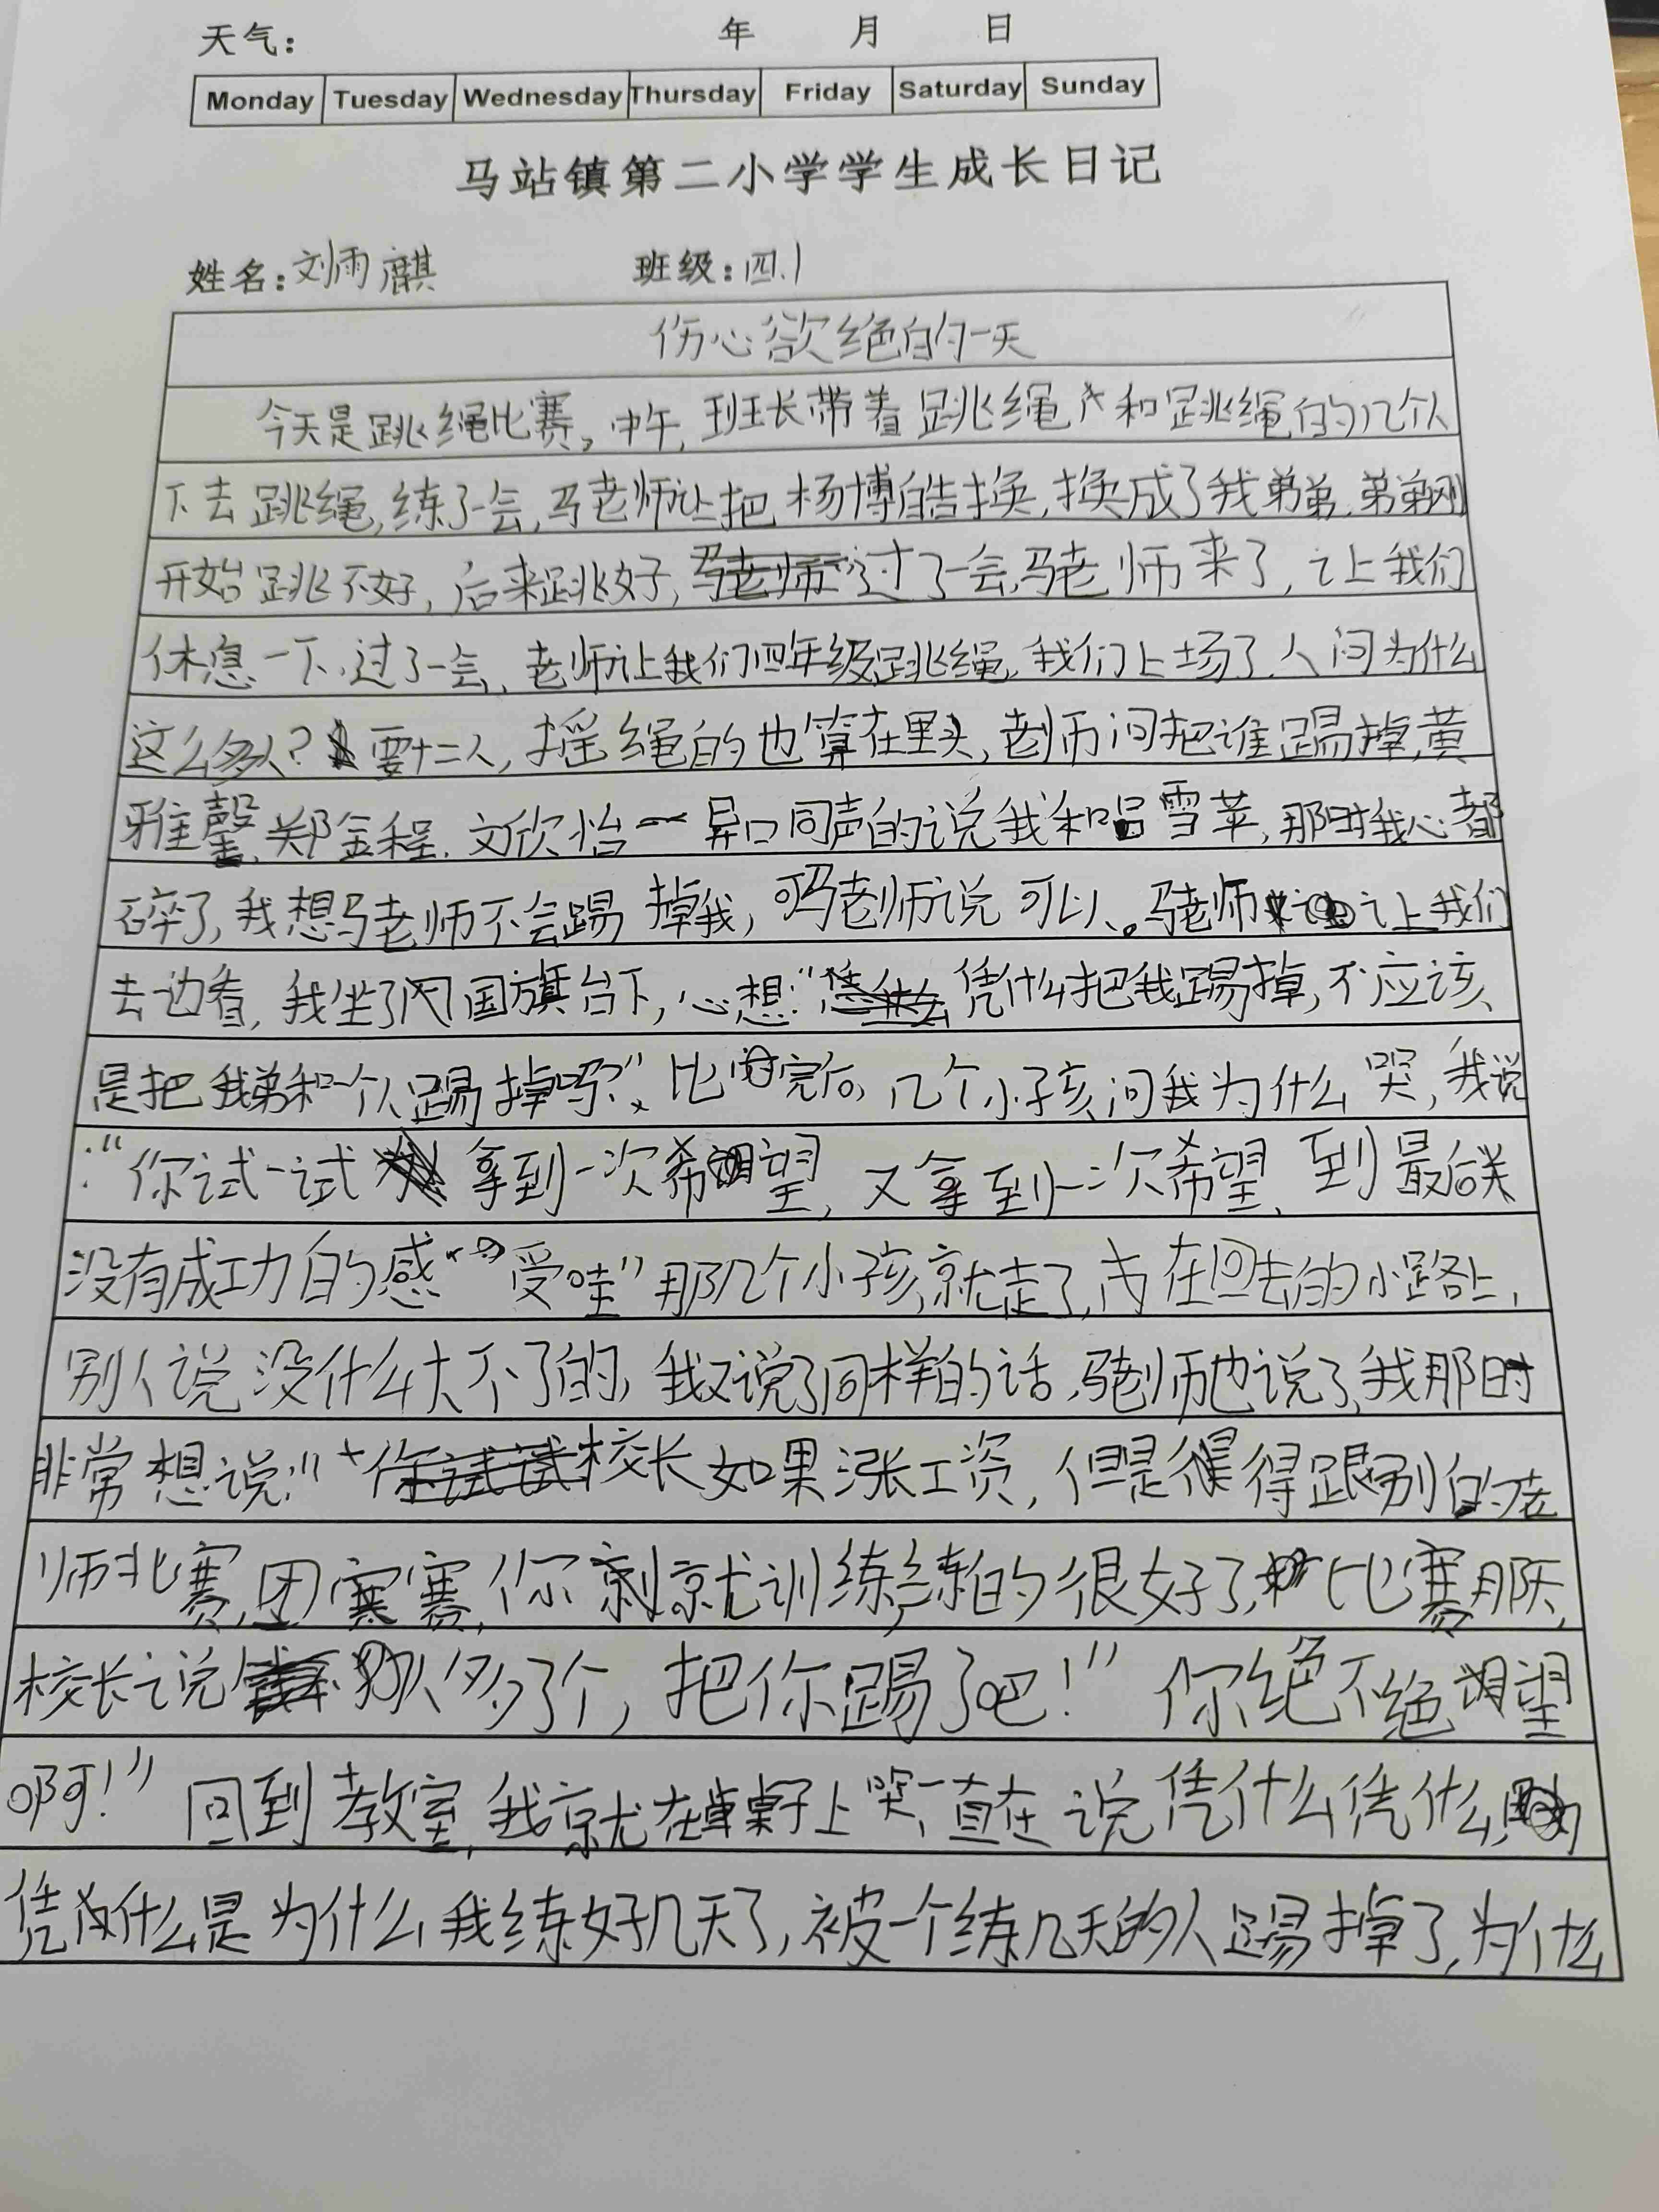 天气： 年 月 日
Monday Tuesday Wednesday Thursday Friday Saturday Sunday
马站镇第二小学学生成长日记
姓名：刘雨麒 班级：四.1
伤心欲绝的一天
今天是跳绳比赛，中午，班长带着跳绳和跳绳的几个人
下去跳绳，练了一会，马老师让把杨博皓换，换成了我弟弟，弟弟刚
开始跳不好，后来跳好，过了一会，马老师来了，让我们
休息一下，过了一会，老师让我们四年级跳绳，我们上场了，人问为什么
这么多人？要十二人，摇绳的也算在里头，老师问把谁踢掉，黄
雅馨，郑金程，文欣怡一异口同声的说我和吕雪苹，那时我心都
碎了，我想马老师不会踢掉我，可马老师说可以。马老师让我们
去边看，我坐了国旗台下，心想：“凭什么把我踢掉，不应该
是把我弟和一个人踢掉吗？”比完后，几个小孩问我为什么哭，我说
：“你试一试拿到一次希望，又拿到一次希望，到最后关
没有成功的感受哇”那几个小孩就走了，在回去的小路上，
别人说没什么大不了的，我又说了同样的话，马老师也说了，我那时
非常想说：“校长如果涨工资，但是得跟别的老
师比赛，团赛，你就训练练的很好了，比赛那天，
校长说人多了个，把你踢了吧！”你绝不绝望
啊！” 回到教室，我就在桌子上哭，一直在说凭什么凭什么，
凭什么是为什么我练好几天了，被一个练几天的人踢掉了，为什么